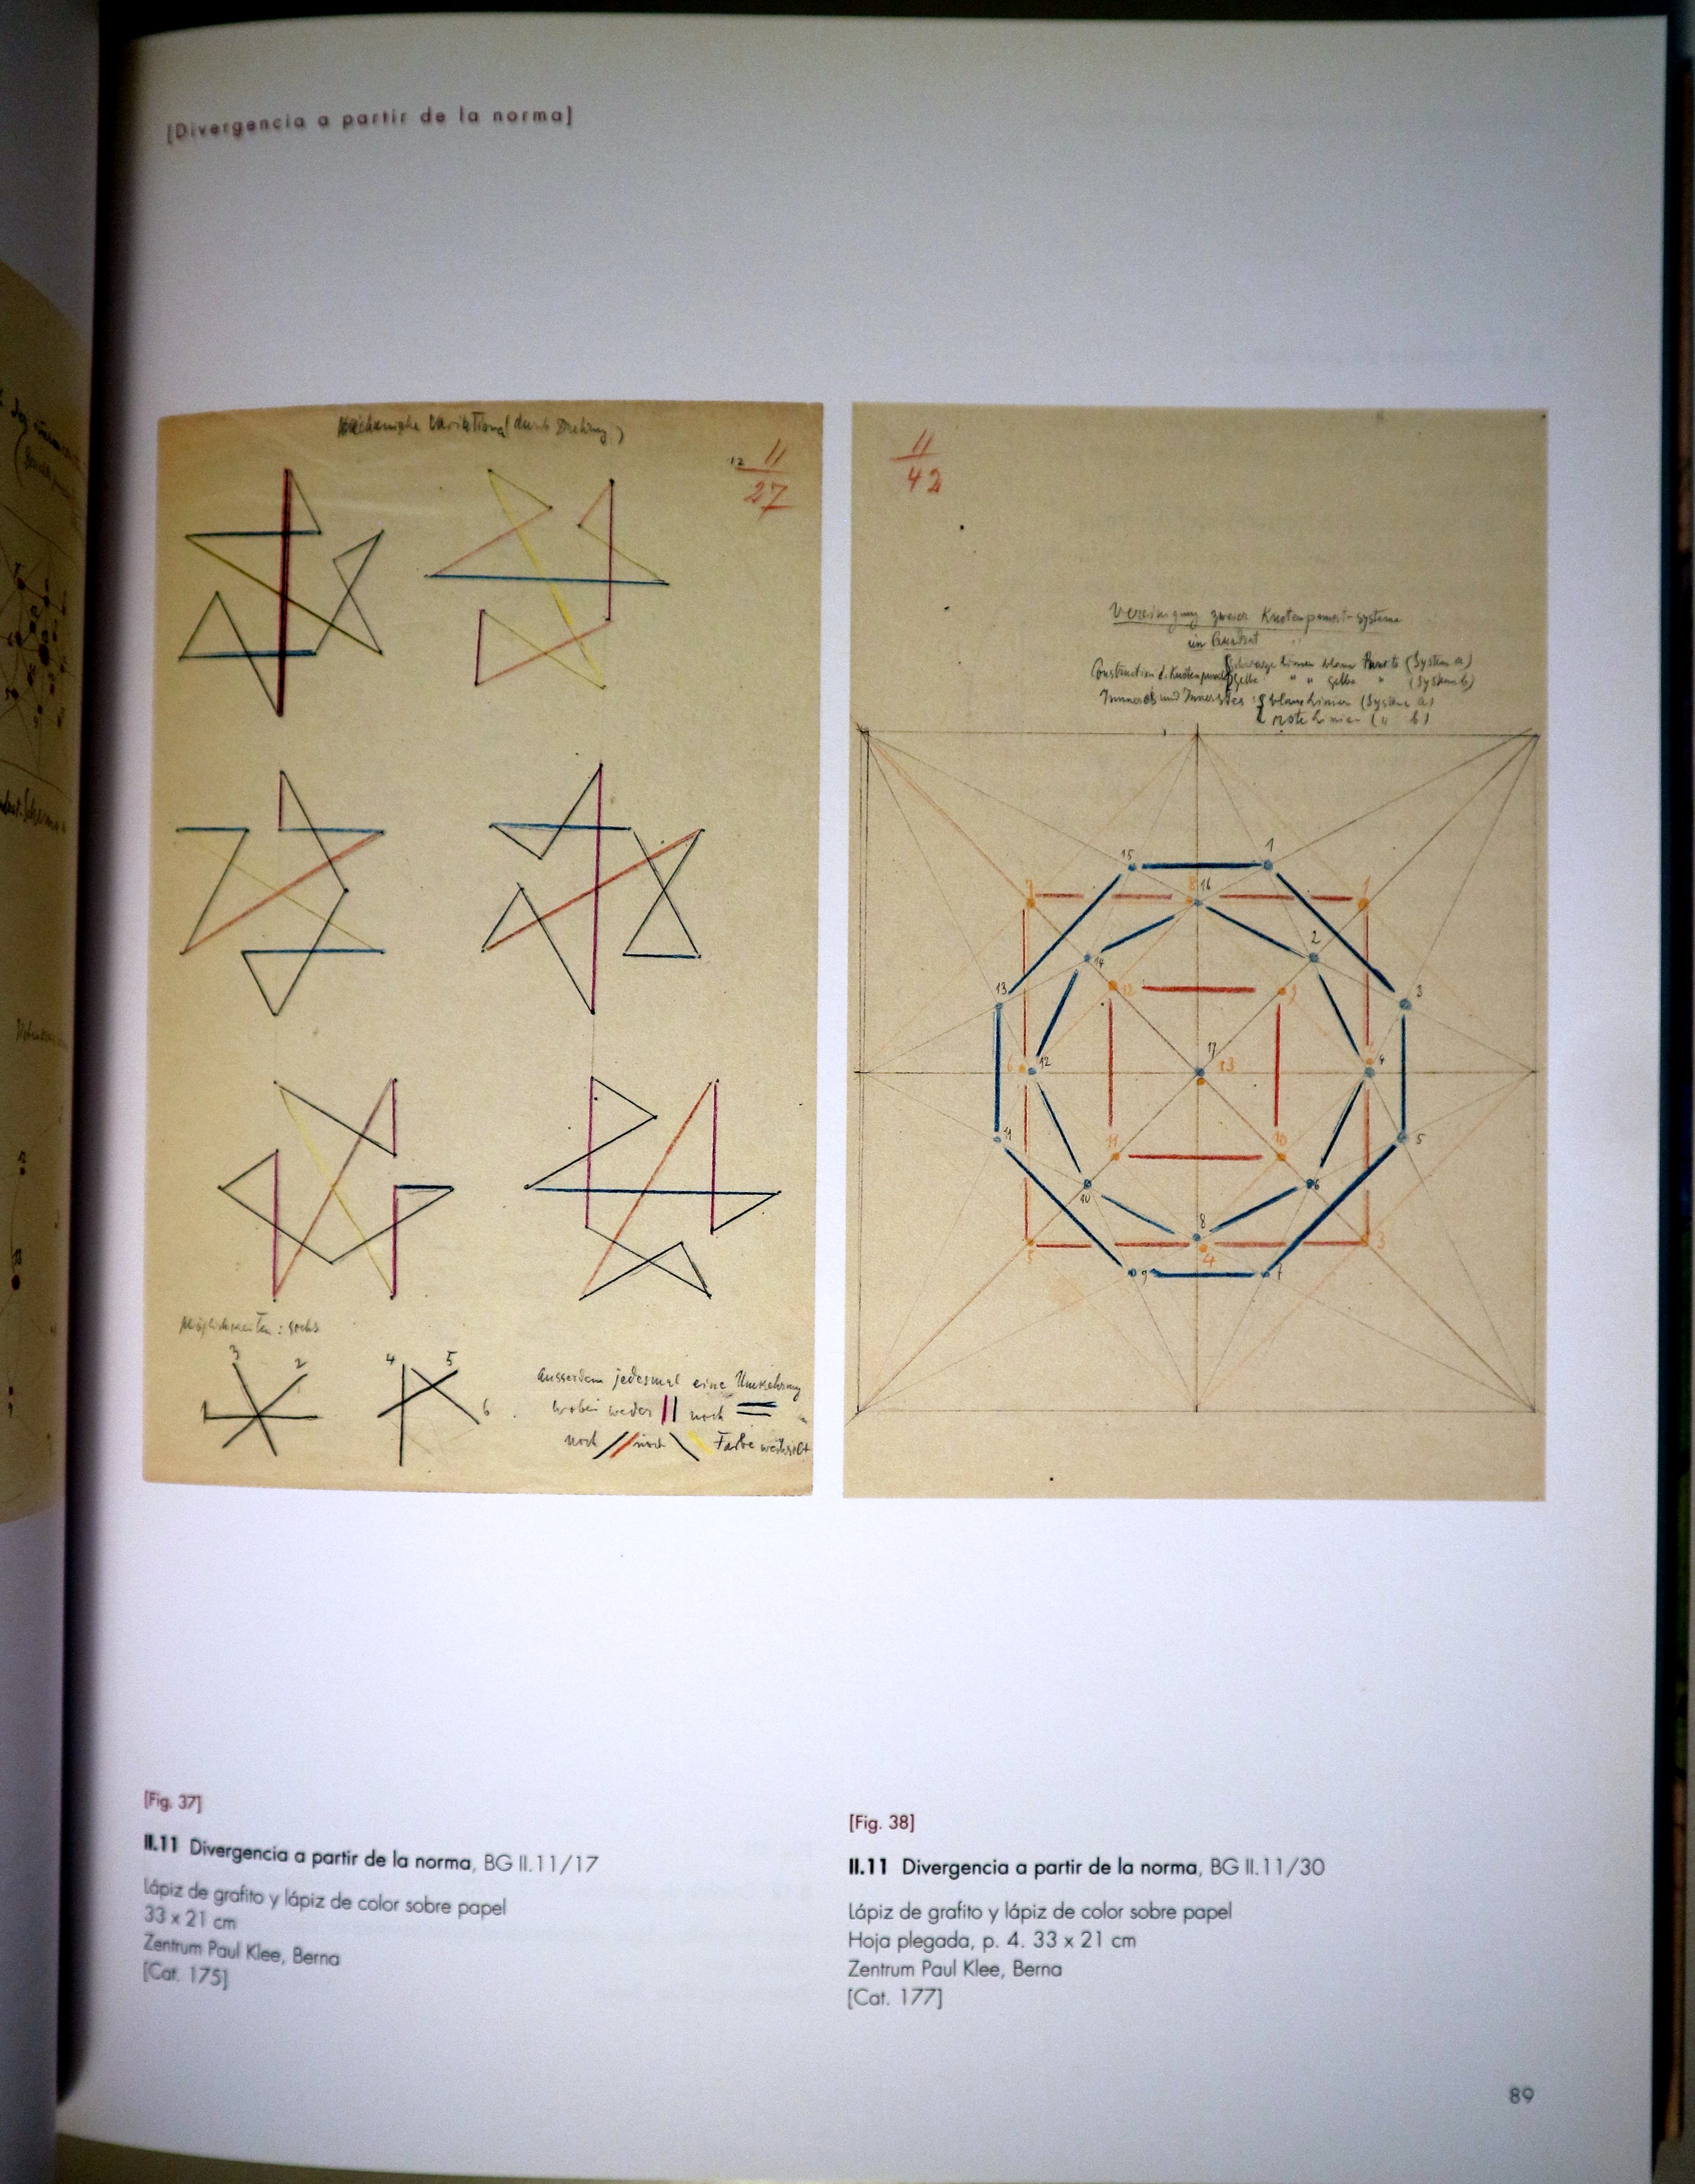 [Divergencia a partir de la norma]
Mechanische Variationen (durch Drehung)
12 11
27
Möglichkeiten: sechs
3 2 4 5
1 6
Ausserdem jedesmal eine Umkehrung
wobei weder noch
noch noch Farbe wechselt
11
42
Vereinigung zweier Knotenpunkt-systeme
im Quadrat
Construction d. Knotenpunkte schwarze Linien blaue Punkte (System a)
gelbe " " gelbe " (System b)
Inneres und Innerstes: blaue Linien (System a)
rote Linien (" b)
15 1
7 8 16 1
14 2
12 9
13 3
17
6 12 13 4
11 5
11 10
10 6
8
5 4 3
9 7
[Fig. 37]
II.11 Divergencia a partir de la norma, BG II.11/17
Lápiz de grafito y lápiz de color sobre papel
33 x 21 cm
Zentrum Paul Klee, Berna
[Cat. 175]
[Fig. 38]
II.11 Divergencia a partir de la norma, BG II.11/30
Lápiz de grafito y lápiz de color sobre papel
Hoja plegada, p. 4. 33 x 21 cm
Zentrum Paul Klee, Berna
[Cat. 177]
89